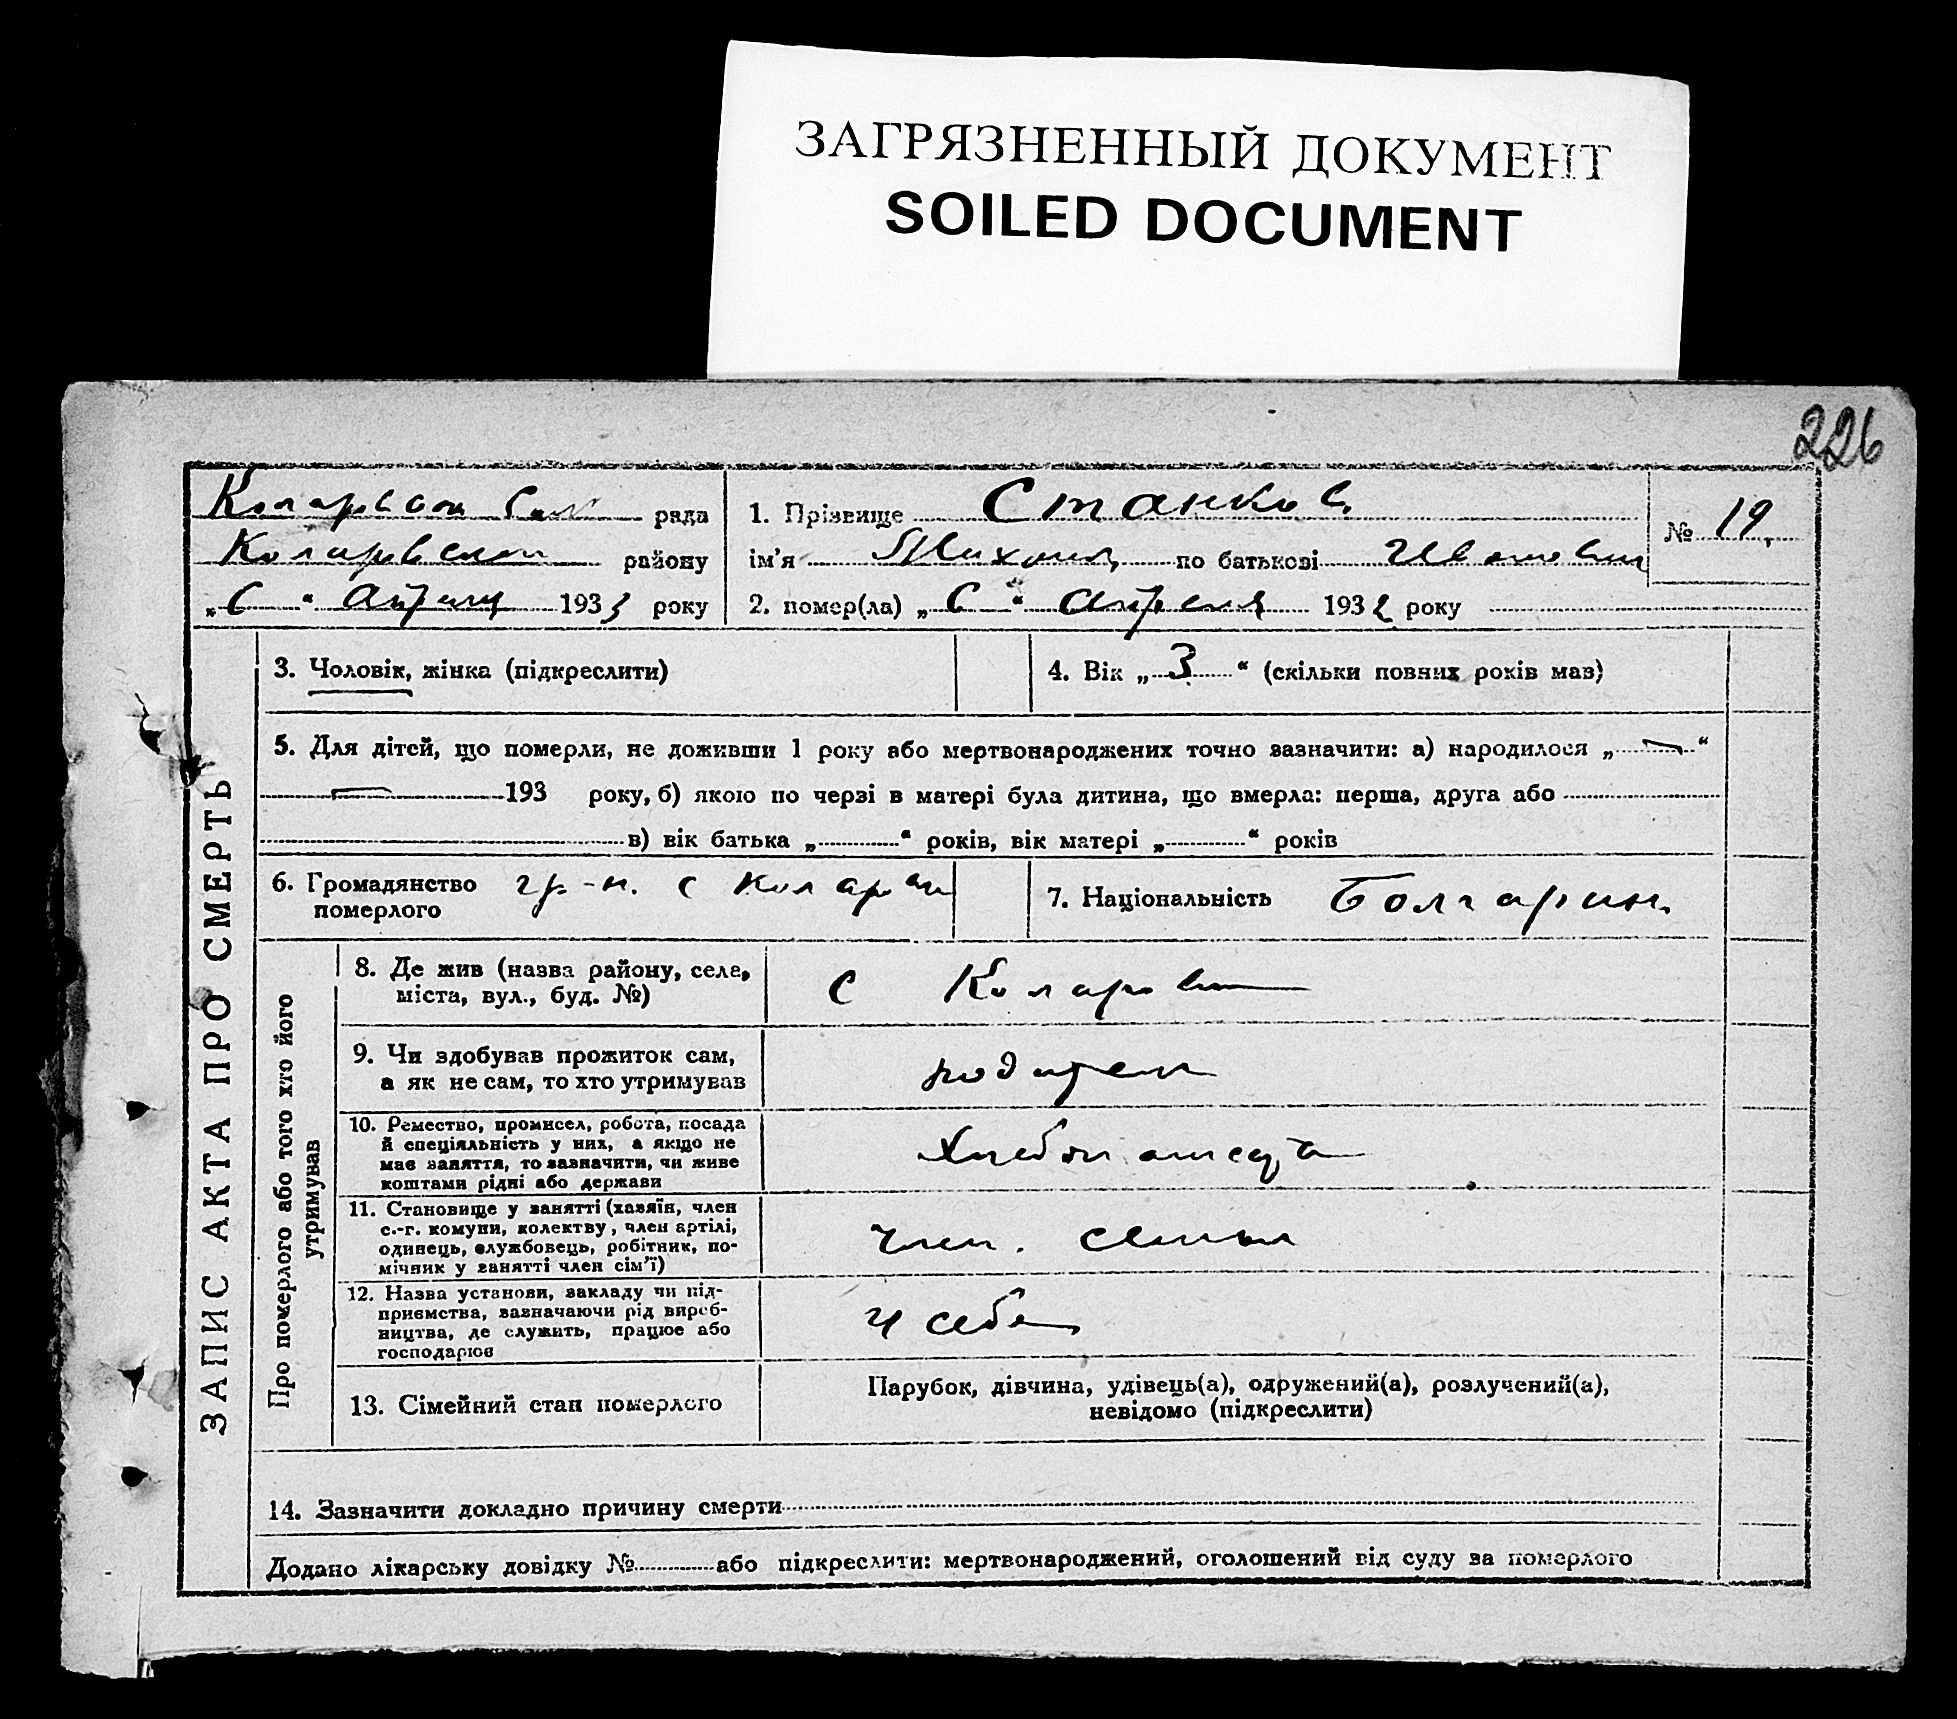 ЗАГРЯЗНЕННЫЙ ДОКУМЕНТ
SOILED DOCUMENT
226
рада
району
„ 6 “ Апреля 1933 року
1. Прізвище Станков
ім'я Михаил по батькові Иванович
2. помер(ла) „ 6 “ Апреля 193 року
№ 19.
ЗАПИС АКТА ПРО СМЕРТЬ
3. Чоловік, жінка (підкреслити)
4. Вік „ 3 “ (скільки повних років мав)
5. Для дітей, що померли, не доживши 1 року або мертвонароджених точно зазначити: а) народилося „ — “
— 193 року, б) якою по черзі в матері була дитина, що вмерла: перша, друга або
в) вік батька „ “ років, вік матері „ “ років
6. Громадянство
померлого
гр-н. с
7. Національність Болгарин.
Про померлого або того хто його
утримував
8. Де жив (назва району, села,
міста, вул., буд. №)
с Коларовка
9. Чи здобував прожиток сам,
а як не сам, то хто утримував
родители
10. Ремество, промисел, робота, посада
й спеціяльність у них, а якщо не
має заняття, то зазначити, чи живе
коштами рідні або держави
11. Становище у занятті (хазяїн, член
с.-г. комуни, колектву, член артілі,
одинець, службовець, робітник, по-
мічник у занятті член сім'ї)
член. семьи
12. Назва установи, закладу чи під-
приємства, зазначаючи рід вироб-
ництва, де служить, працює або
господарює
у себя
13. Сімейний стан померлого
Парубок, дівчина, удівець(а), одружений(а), розлучений(а),
невідомо (підкреслити)
14. Зазначити докладно причину смерти
Додано лікарську довідку № або підкреслити: мертвонароджений, оголошений від суду за померлого